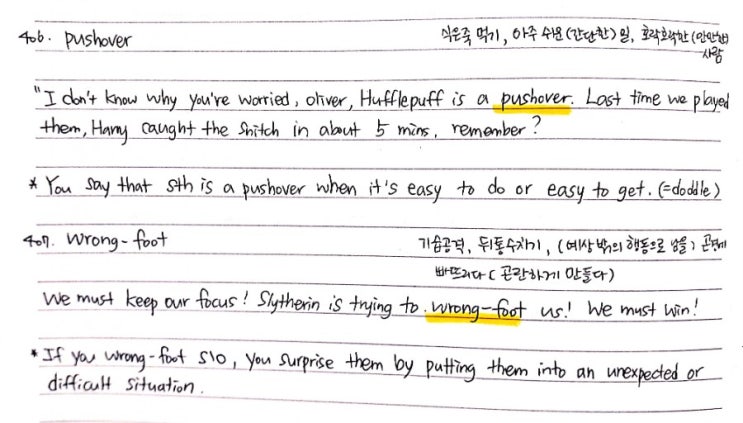 406. pushover 식은죽 먹기, 아주 쉬운(간단한) 일, 호락호락한(만만한)
사람
"I don't know why you're worried, oliver, Hufflepuff is a pushover. Last time we played
them, Harry caught the Snitch in about 5 mins, remember?
* You say that sth is a pushover when it's easy to do or easy to get. (=doddle)
407. Wrong-foot 기습공격, 뒤통수치기, (예상 밖의 행동으로 남을) 곤경에
빠뜨리다(곤란하게 만들다)
We must keep our focus! Slytherin is trying to wrong-foot us! We must win!
* If you wrong-foot s/o, you surprise them by putting them into an unexpected or
difficult situation.